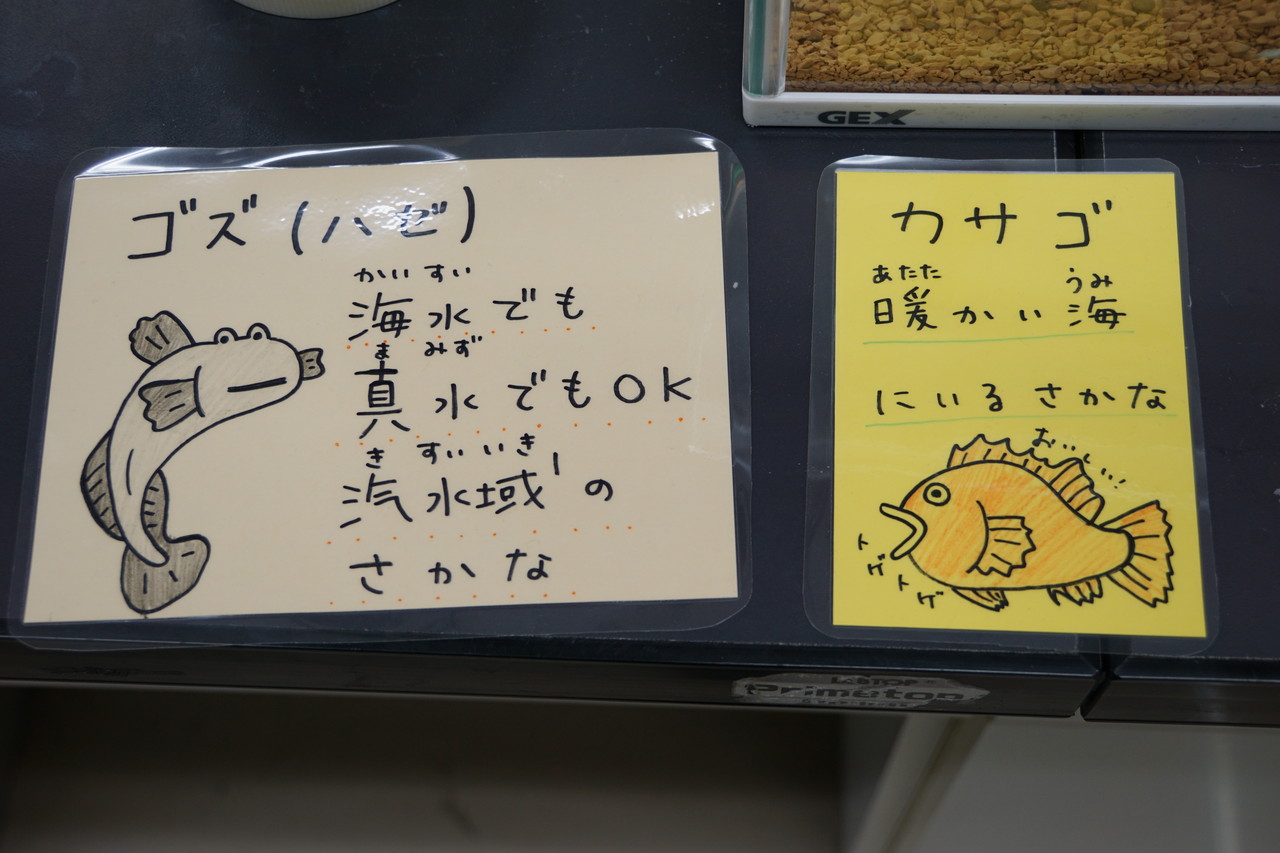 GEX
ゴズ(ハゼ)
かいすい
海水でも
まみず
真水でもOK
きすいいき
汽水域の
さかな
カサゴ
あたた うみ
暖かい海
にいるさかな
おいしい!!
トゲトゲ
LABTOP
Primeton